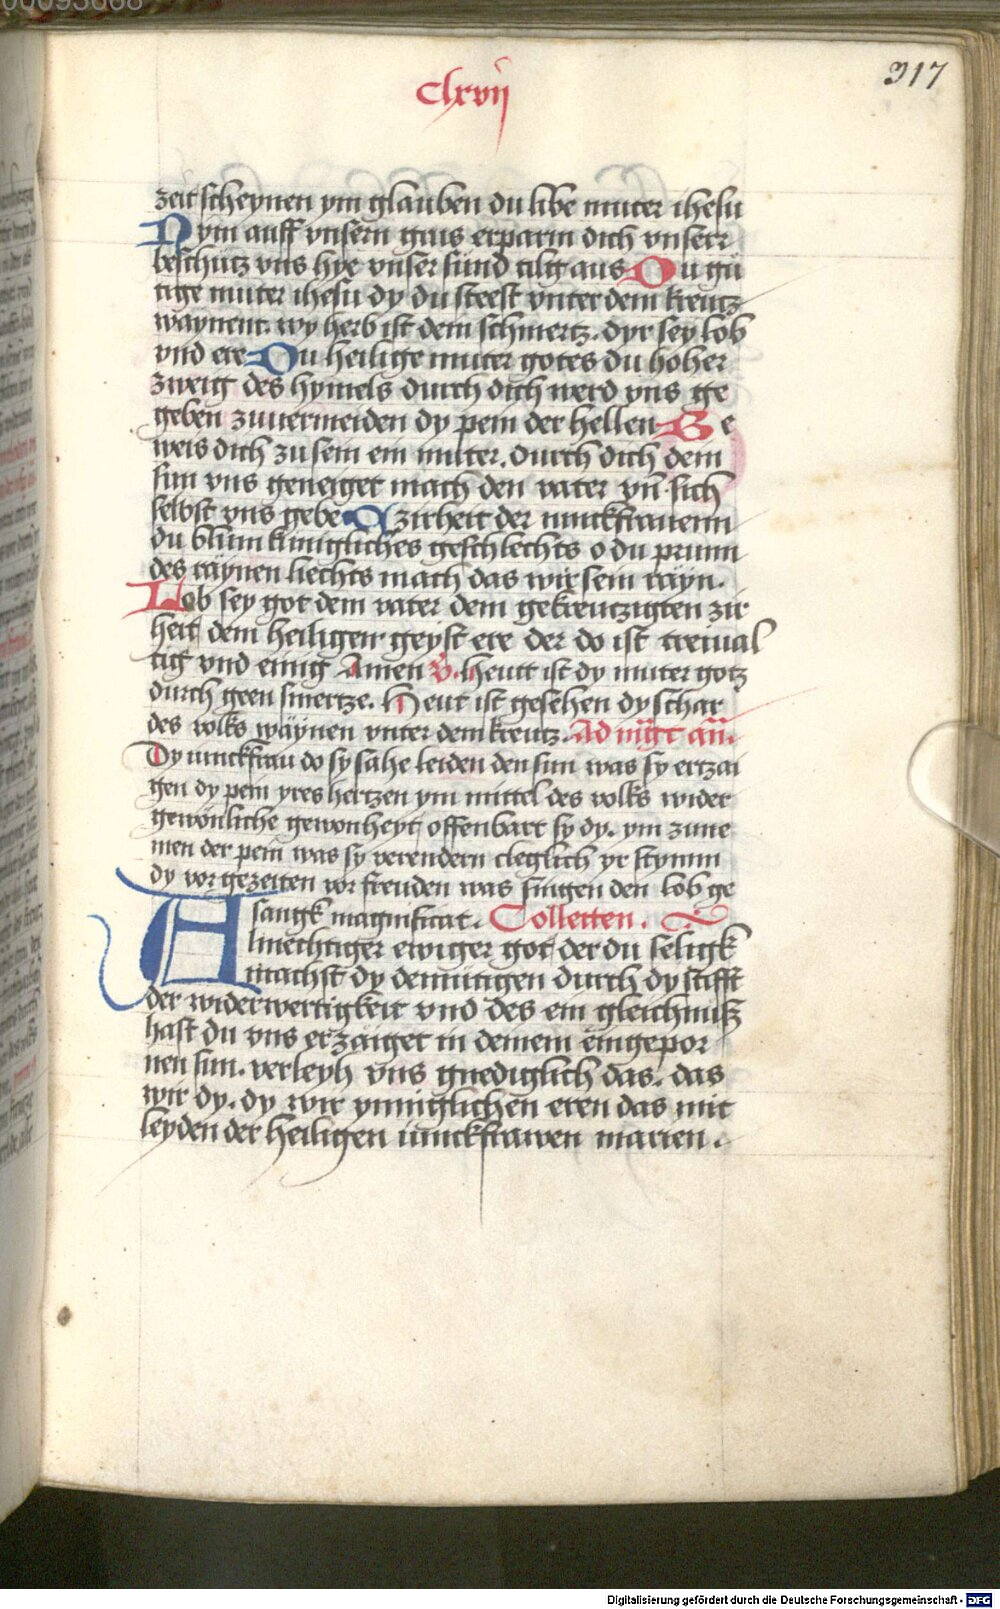 00093668
317
clxvij
zeit scheynen ym glauben du libe muter ihesu
Nym auff vnsern grus erparm dich vnserr
beschutz vns hye vnser sund tilg aus Du gü
tige muter ihesu dy du steest vnter dem kreutz
waynent. wy herb ist dein schmertz. dyr sey lob
vnd ere Du heilige muter gotes du hoher
zweig des hymels durch dich werd vns ge
geben zuuermeiden dy pein der hellen Be
weis dich zu sein ein muter. durch dich dein
sun vns geneiget mach den vater vñ sich
selbst vns gebe O zirheit der iunckfrauenn
du blum kunigliches geschlechts o du prunn
des räynen liechts mach das wir sein räyn.
Lob sey got dem vater dem gekreutzigten zir
heit dem heiligen geyst ere der do ist treiual
tig vnd einig Amen v. Heutt ist dy muter gotz
durch geen smertze. Heut ist gesehen dy schar
des volks wäynen vnter dem kreutz. Ad mgt añ.
Dy iunckfrau do sy sahe leiden den sun was sy ertzai
gen dy pein yres hertzen ym mittel des volks wider
gewönliche gewonheyt offenbart sy dy. ym zune
men der pein was sy verendern cleglich yr stymm
dy vor gezeiten vor freuden was singen den lob ge
sangk magnificat. Collecten.
Almechtiger ewiger got der du seligk
machst dy demütigen durch dy stifft
der widerwertigkeit vnd des ein gleichnusz
hast du vns erzaiget in deinem eingepor
nen sun. verleyh vns gnediglich das. das
wir dy. dy wir ynniglichen eren das mit
leyden der heiligen iunckfrawen marien.
Digitalisierung gefördert durch die Deutsche Forschungsgemeinschaft - DFG